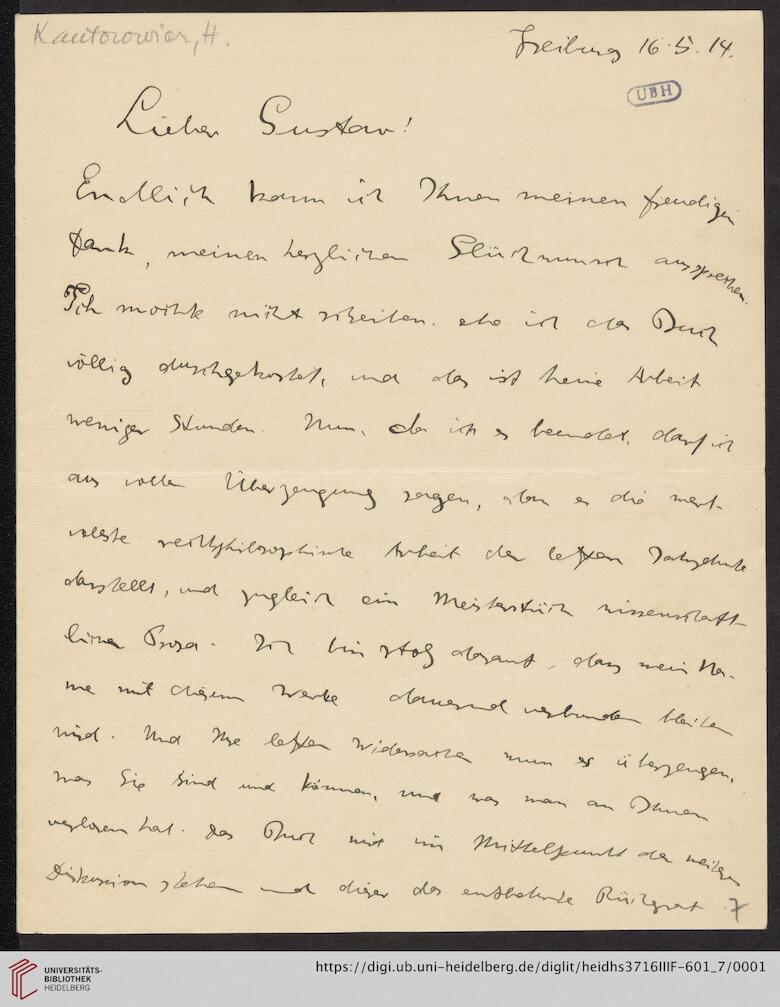 Kantorowicz, H.
Freiburg 16.5.14.
UBH
Lieber Gustav!
Endlich kann ich Ihnen meinen freudigen
Dank, meinen herzlichen Glückwunsch aussprechen.
Ich mochte nicht schreiben, ehe ich das Buch
völlig durchgekostet, und das ist keine Arbeit
weniger Stunden. Nun, da ich es beendet, darf ich
aus voller Überzeugung sagen, dass es die wert-
vollste rechtsphilosophische Arbeit der letzten Jahrzehnte
darstellt, und zugleich ein Meisterstück wissenschaft-
licher Prosa. Ich bin stolz darauf, dass mein Na-
me mit diesem Werke dauernd verbunden bleiben
wird. Und Ihre letzten Widersacher muss es überzeugen,
was Sie sind und können, und was man an Ihnen
verloren hat. Das Buch wird im Mittelpunkt der weiteren
Diskussion stehen und dieser das entbehrte Rückgrat
7
UNIVERSITÄTS-
BIBLIOTHEK
HEIDELBERG
https://digi.ub.uni-heidelberg.de/diglit/heidhs3716IIIF-601_7/0001